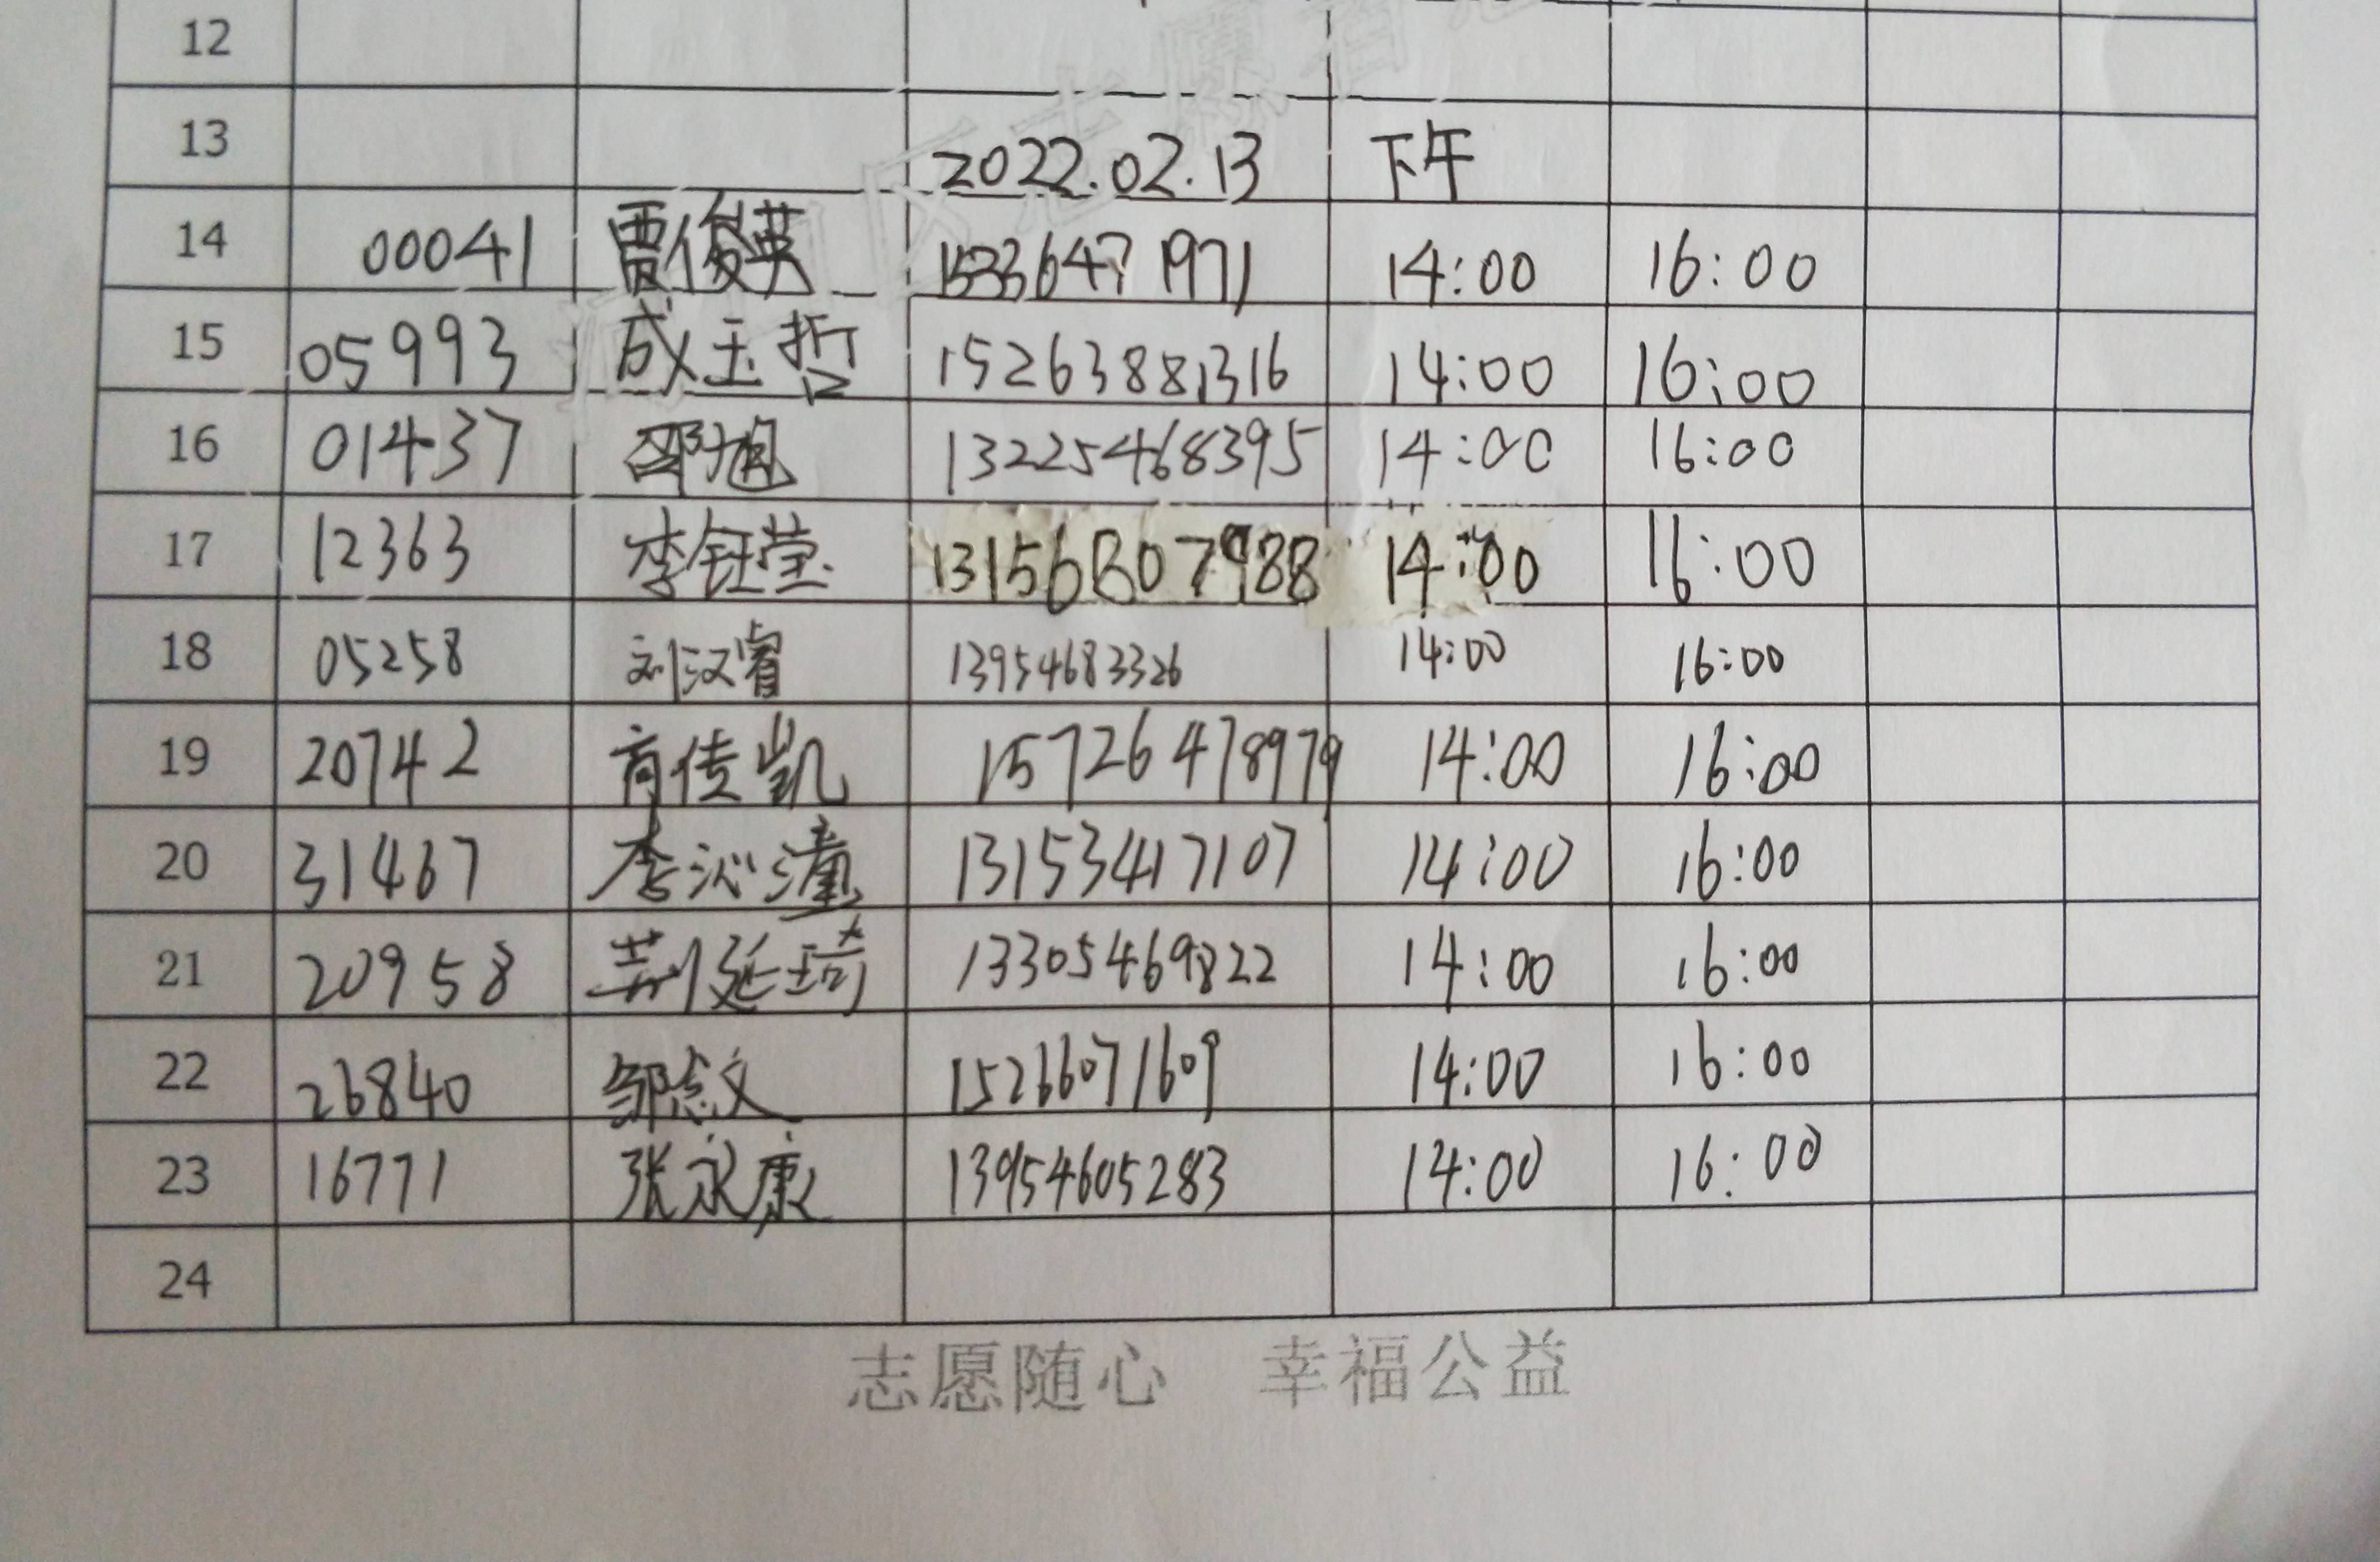 12
13 2022.02.13 下午
14 00041 贾俊英 15336471971 14:00 16:00
15 05993 成玉哲 15263881316 14:00 16:00
16 01437 邵旭 13225468395 14:00 16:00
17 12363 李钰莹 13156807988 14:00 16:00
18 05258 刘汉睿 13954683326 14:00 16:00
19 20742 商传凯 15726478979 14:00 16:00
20 31467 李沁潼 13153417107 14:00 16:00
21 20958 荆延琦 13305469822 14:00 16:00
22 26840 邹志文 15266071609 14:00 16:00
23 16771 张永康 13954605283 14:00 16:00
24
志愿随心 幸福公益